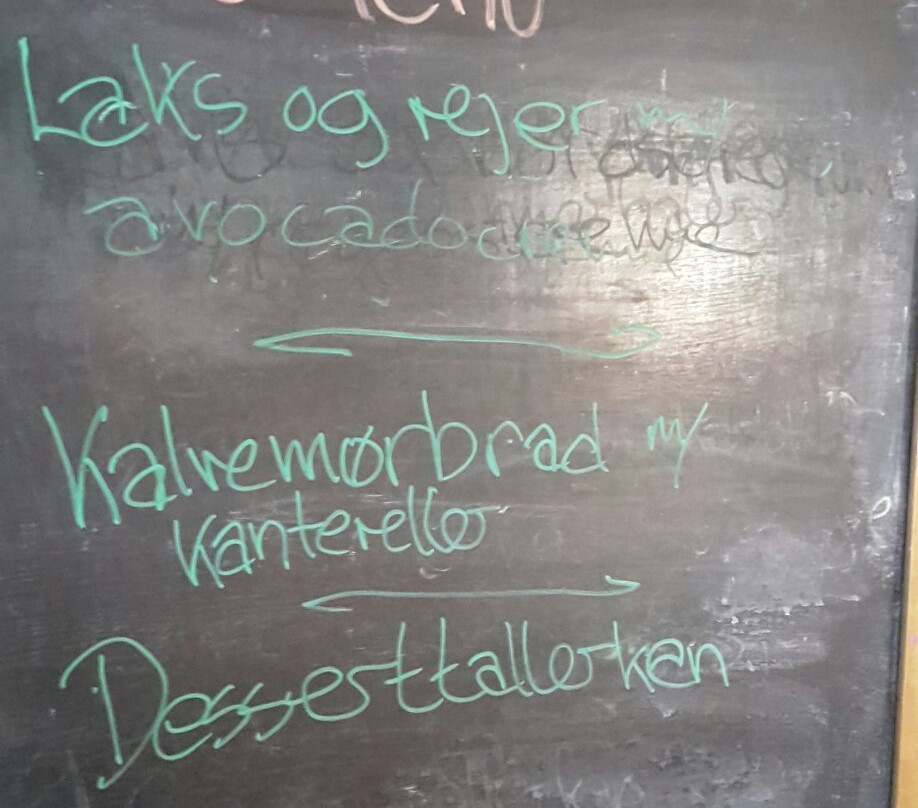 Laks og rejer m/
avocadocreme
Kalvemørbrad m/
Kantereller
Desserttallerken